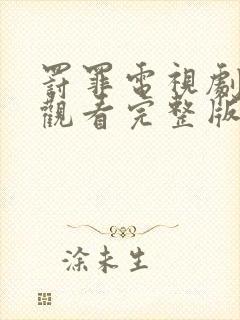 罰罪電視劇
觀看完整版
涂未生